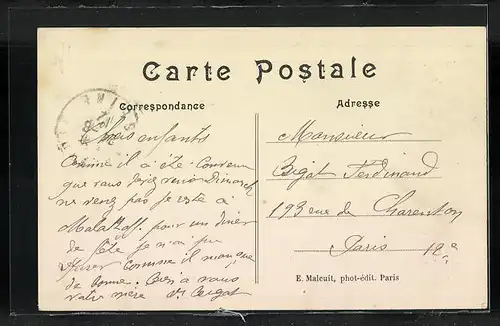 Carte Postale
Correspondance
Adresse
AMIENS
Chers enfants
Comme il a été convenu
que vous Dimanche
ne venez pas je reste à
Malakoff pour un diner
de fête je n'ai pu
refuser comme il manque
de bonne. à vous
votre mère
Monsieur
Bigat Ferdinand
193 rue de Charenton
Paris 12e
E. Malcuit, phot-édit. Paris